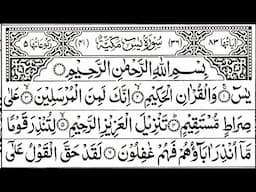 اٰیاتها ٨٣ (٣٦) سُوْرَةُ يٰسٓ مَكِّيَّةٌ (٤١) رکوعاتها ٥
بِسْمِ اللّٰهِ الرَّحْمٰنِ الرَّحِيْمِ
يٰسٓ ۝ وَالْقُرْاٰنِ الْحَكِيْمِ ۝ اِنَّكَ لَمِنَ الْمُرْسَلِيْنَ ۝ عَلٰى
صِرَاطٍ مُّسْتَقِيْمٍ ۝ تَنْزِيْلَ الْعَزِيْزِ الرَّحِيْمِ ۝ لِتُنْذِرَ قَوْمًا
مَّاۤ اُنْذِرَ اٰبَآؤُهُمْ فَهُمْ غٰفِلُوْنَ ۝ لَقَدْ حَقَّ الْقَوْلُ عَلٰٓى